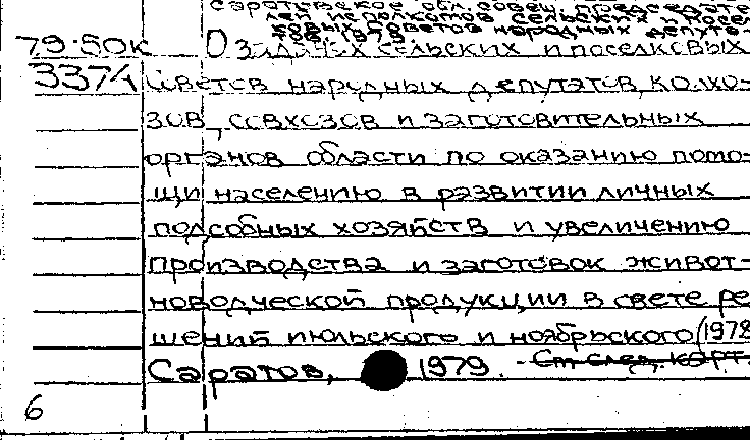 Саратовское обл. совещ. председате-
лей исполкомов сельских и посел-
ковых советов народных депута-
79-50к О задачах сельских и поселковых
3374 советов народных депутатов, колхо-
зов, совхозов и заготовительных
органов области по оказанию помо-
щи населению в развитии личных
подсобных хозяйств и увеличению
производства и заготовок живот-
новодческой продукции в свете ре
шений июльского и ноябрьского (1978
Саратов, 1979. - См. след. карт.
6